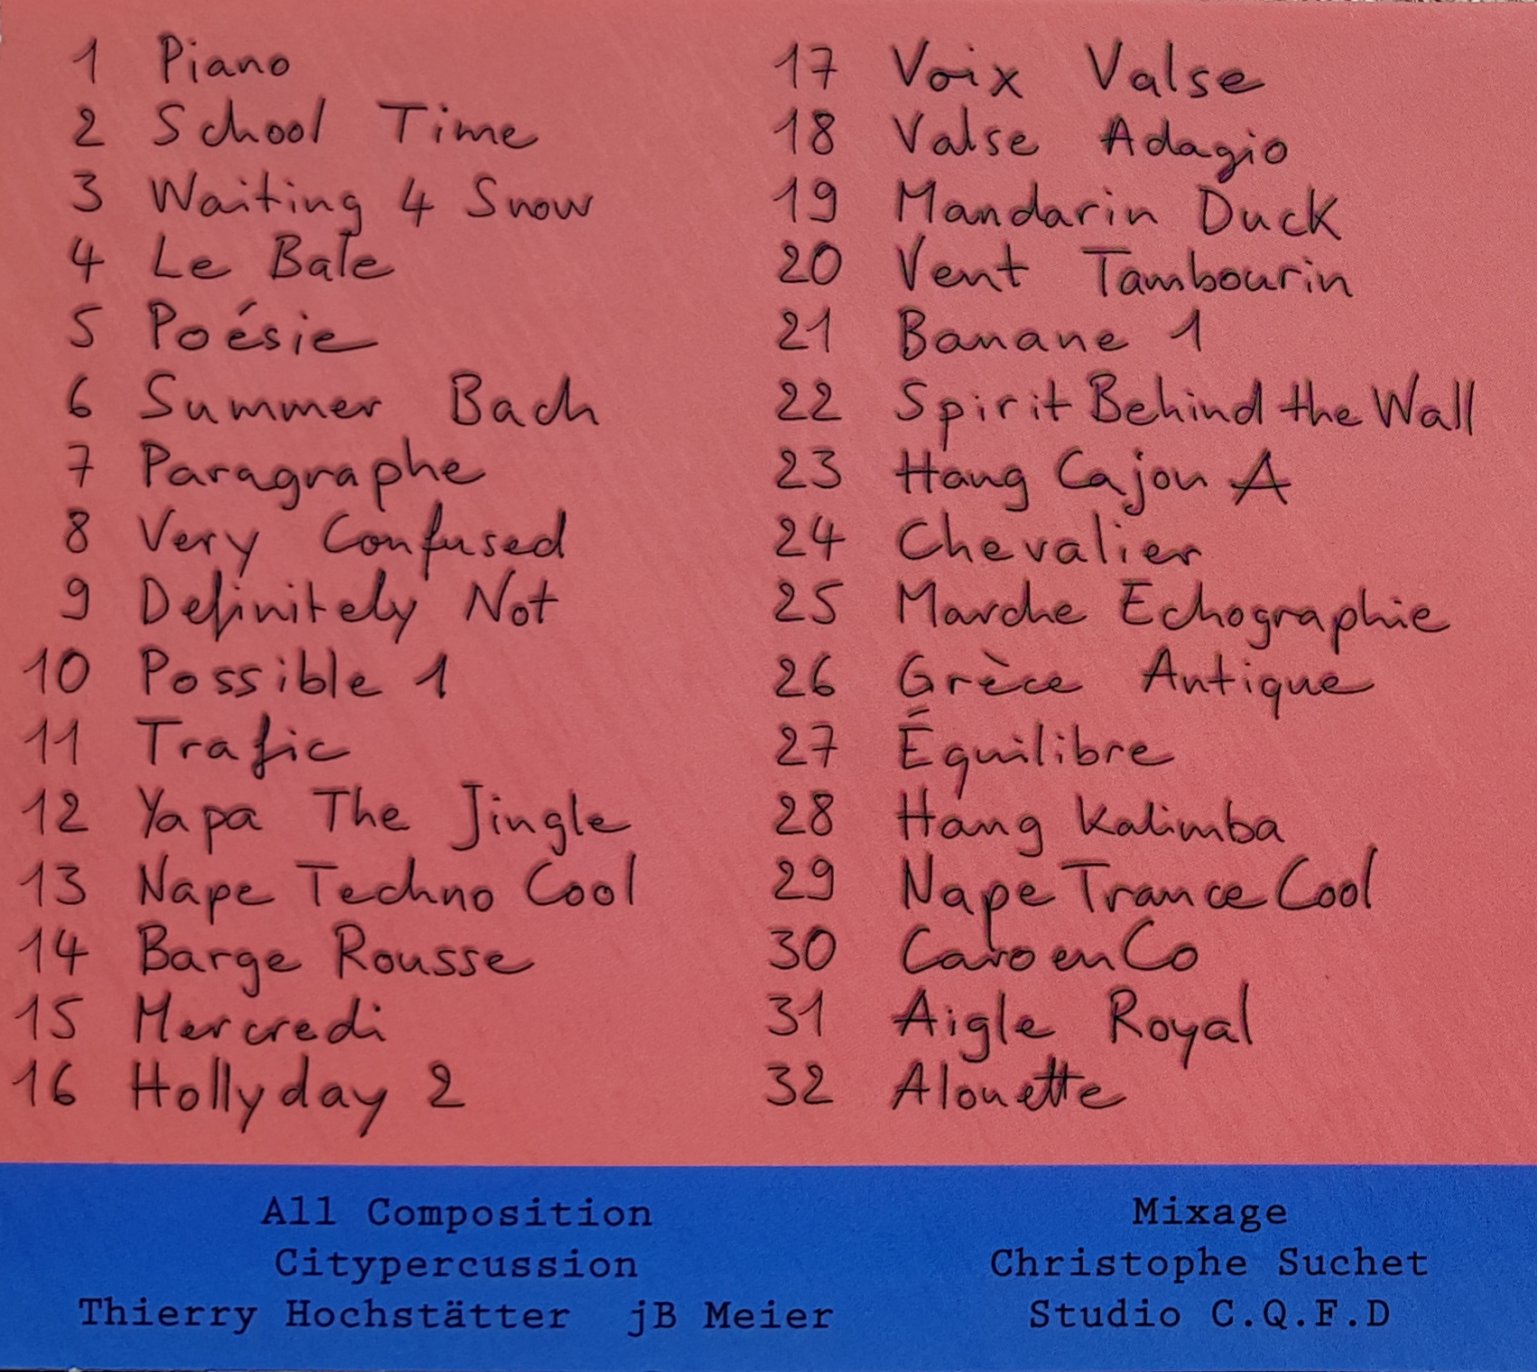 1 Piano
2 School Time
3 Waiting 4 Snow
4 Le Bale
5 Poésie
6 Summer Bach
7 Paragraphe
8 Very Confused
9 Definitely Not
10 Possible 1
11 Trafic
12 Yapa The Jingle
13 Nape Techno Cool
14 Barge Rousse
15 Mercredi
16 Hollyday 2
17 Voix Valse
18 Valse Adagio
19 Mandarin Duck
20 Vent Tambourin
21 Banane 1
22 Spirit Behind the Wall
23 Hang Cajon A
24 Chevalier
25 Marche Echographie
26 Grèce Antique
27 Équilibre
28 Hang Kalimba
29 Nape Trance Cool
30 Caro en Co
31 Aigle Royal
32 Alouette
All Composition
Citypercussion
Thierry Hochstätter jB Meier
Mixage
Christophe Suchet
Studio C.Q.F.D